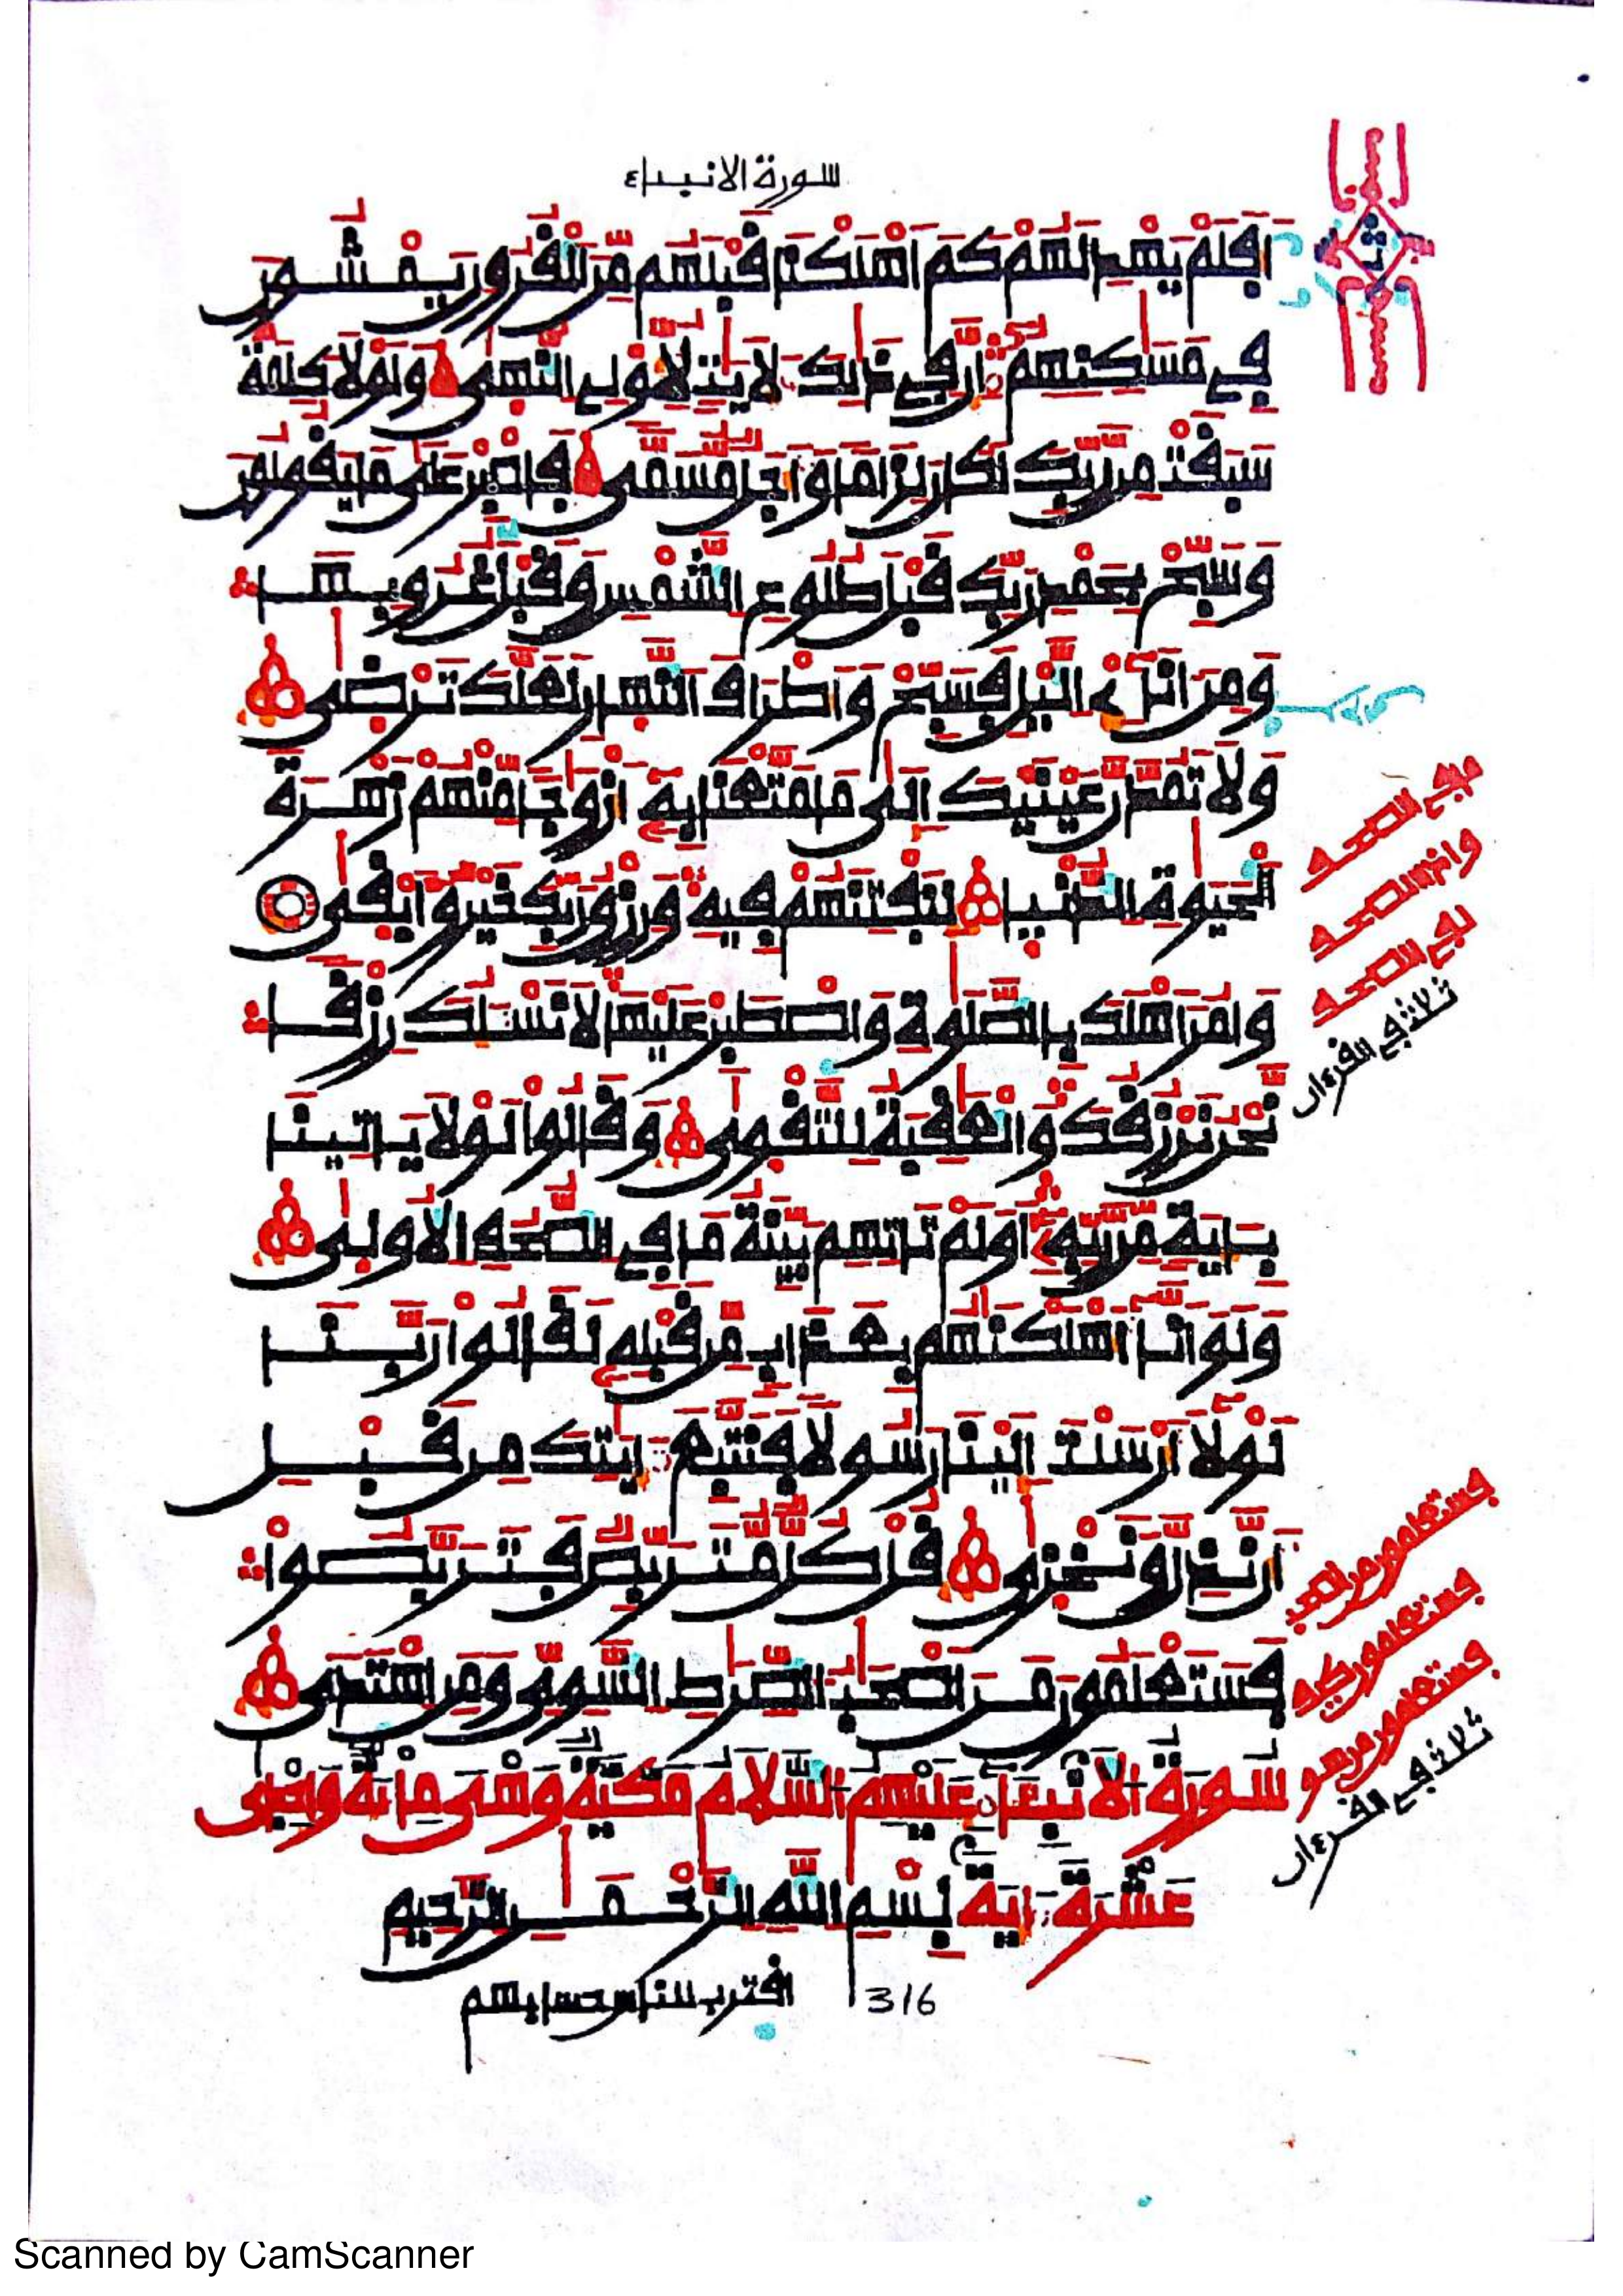 سورة الانبياء
اَفَلَمْ يَهْدِ لَهُمْ كَمَ اَهْلَكْنَا قَبْلَهُم مِّنَ اَلْقُرُونِ يَمْشُونَ
فِي مَسَٰكِنِهِمُۥٓ إِنَّ فِي ذَٰلِكَ لَأٓيَٰتٖ لِّأُوْلِي اِلنُّهَىٰ وَلَوْلَا كَلِمَةٞ
سَبَقَتْ مِن رَّبِّكَ لَكَانَ لِزَاماٗ وَأَجَلٞ مُّسَمّٗى فَاصْبِرْ عَلَىٰ مَا يَقُولُونَ
وَسَبِّحْ بِحَمْدِ رَبِّكَ قَبْلَ طُلُوعِ اِلشَّمْسِ وَقَبْلَ غُرُوبِهَا
وَمِنَ اٰنَآءِےْ اِلَّيْلِ فَسَبِّحْ وَأَطْرَافَ اَلنَّهَارِ لَعَلَّكَ تَرْضَىٰ
وَلَا تَمُدَّنَّ عَيْنَيْكَ إِلَىٰ مَا مَتَّعْنَا بِهِۦٓ أَزْوَٰجاٗ مِّنْهُمْ زَهْرَةَ
اَلْحَيَوٰةِ اِلدُّنْيَا لِنَفْتِنَهُمْ فِيهِ وَرِزْقُ رَبِّكَ خَيْرٞ وَأَبْقَىٰ
وَامُرَ اَهْلَكَ بِالصَّلَوٰةِ وَاصْطَبِرْ عَلَيْهَا لَا نَسْـَٔلُكَ رِزْقاٗ
نَّحْنُ نَرْزُقُكَ وَالْعَٰقِبَةُ لِلتَّقْوَىٰ وَقَالُواْ لَوْلَا يَاتِينَا
بِـَٔايَةٖ مِّن رَّبِّهِۦٓ أَوَلَمْ تَاتِهِم بَيِّنَةُ مَا فِي اِلصُّحُفِ اِلْأُولَىٰ
وَلَوَ اَنَّآ أَهْلَكْنَٰهُم بِعَذَابٖ مِّن قَبْلِهِۦ لَقَالُواْ رَبَّنَا
لَوْلَآ أَرْسَلْتَ إِلَيْنَا رَسُولاٗ فَنَتَّبِعَ ءَايَٰتِكَ مِن قَبْلِ
أَن نَّذِلَّ وَنَخْزَىٰ قُلْ كُلّٞ مُّتَرَبِّصٞ فَتَرَبَّصُواْ
فَسَتَعْلَمُونَ مَنَ اَصْحَٰبُ اُلصِّرَٰطِ اِلسَّوِيِّ وَمَنِ اِهْتَدَىٰ
سُورَةُ الْأَنْبِيَاءِ عَلَيْهِمُ السَّلَامُ مَكِّيَّةٌ وَهْيَ مِائَةٌ وَإِحْدَى
عَشْرَةَ ءَايَةً بِسْمِ اِللَّهِ اِلرَّحْمَٰنِ اِلرَّحِيمِ
اقترب للناس حسابهم 316
ثمن
نصف
في الصحف
وانه الصحف
لفي الصحف
ثلاث في القرءان
فستعلمون من اصحب
فستعلمون كيف
فستعلمون من هو
ثلاث في القرءان
Scanned by CamScanner